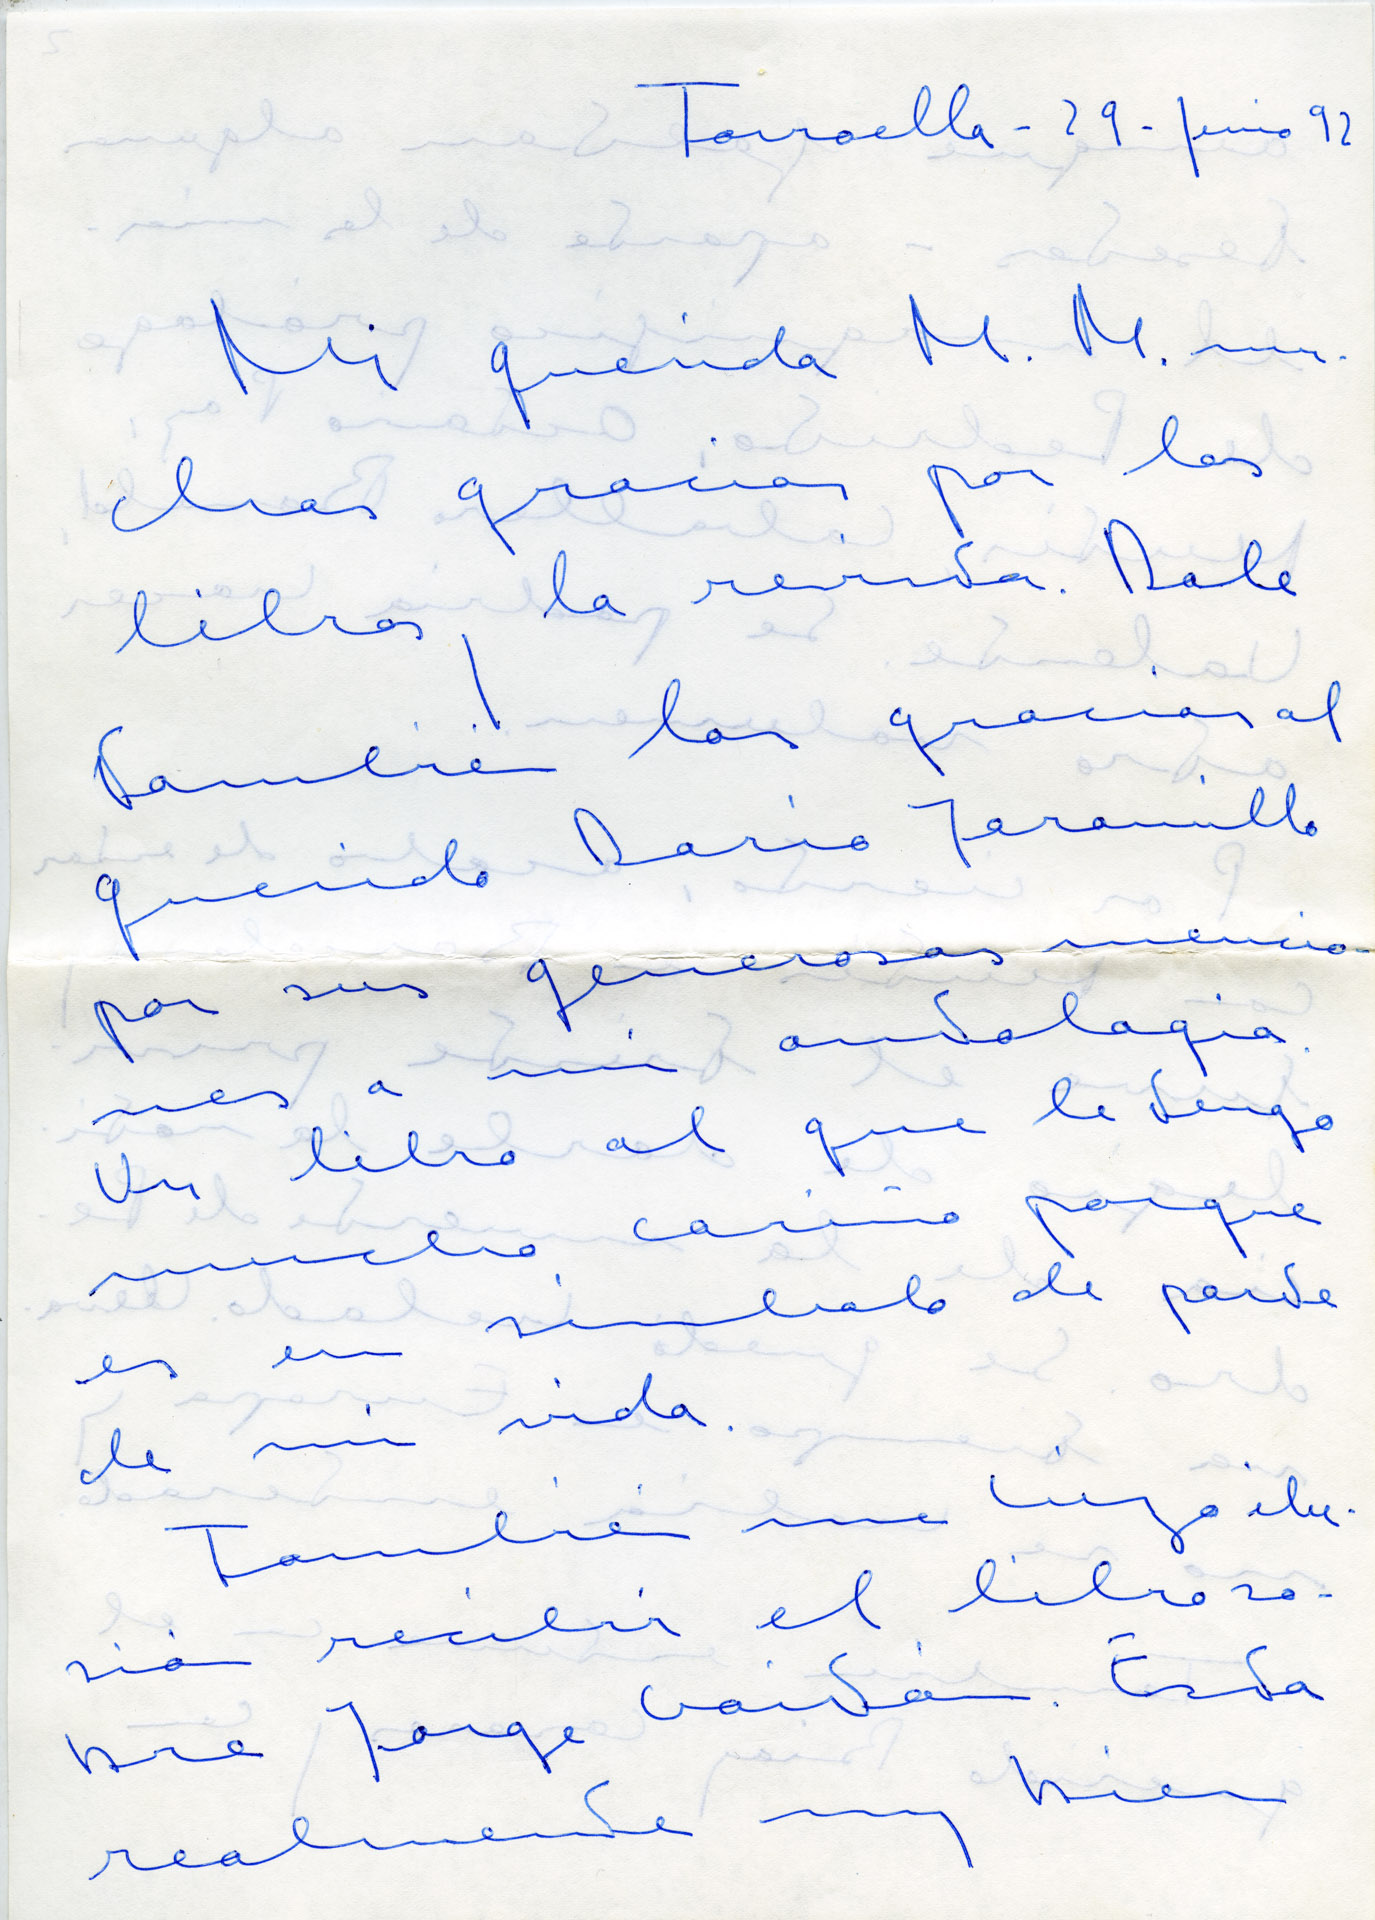 Torroella - 29 - Junio 92
Mi querida M. M. mu-
chas gracias por los
libros y la revista. Dale
también las gracias al
querido Darío Jaramillo
por sus generosas mencio-
nes a mi antología.
Un libro al que le tengo
mucho cariño porque
es un símbolo de parte
de mi vida.
También me hizo ilu-
sión recibir el libro so-
bre Jorge Gaitán. Está
realmente muy bien